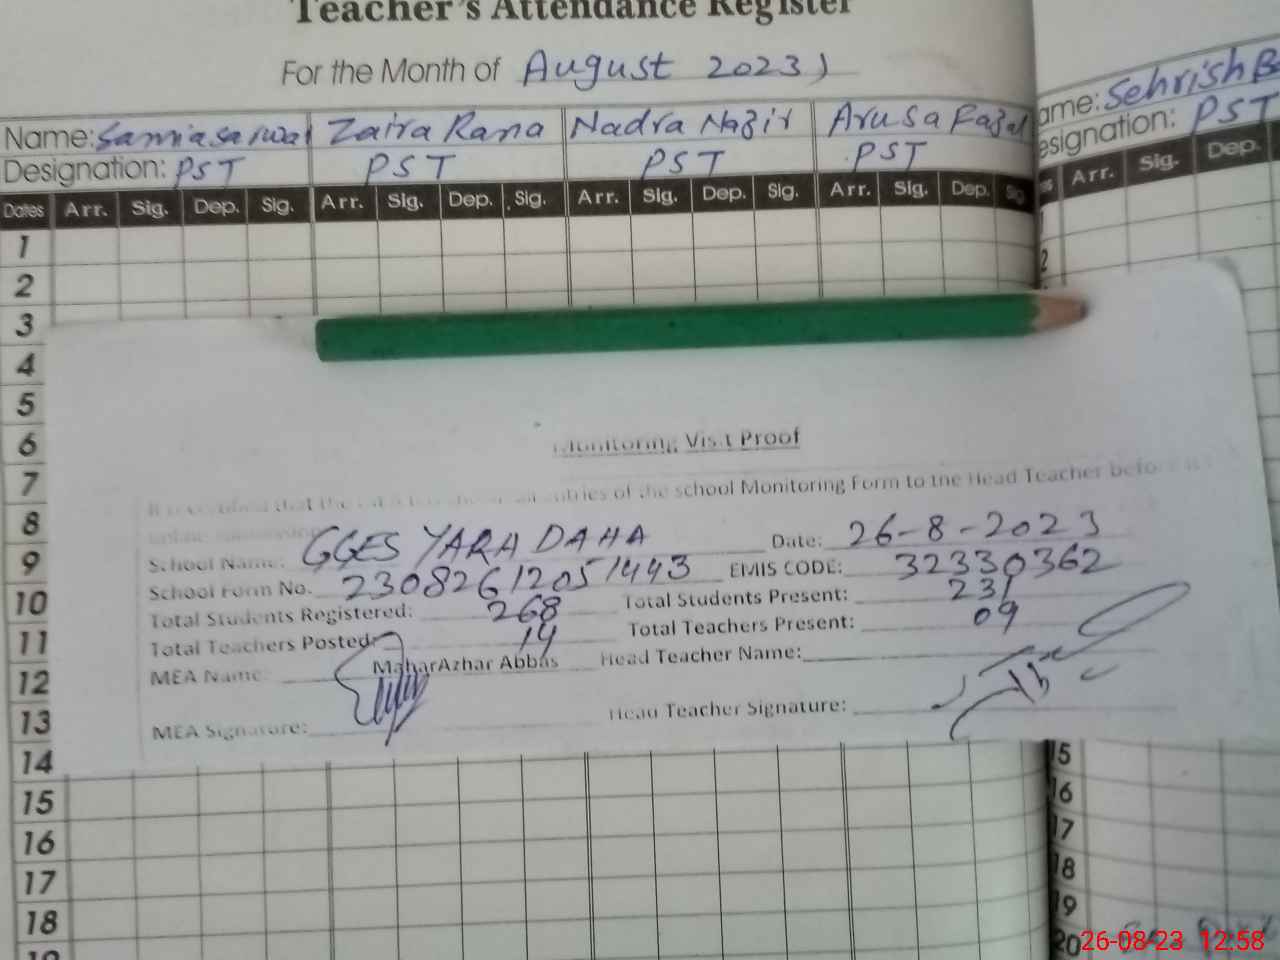 Teacher's Attendance Register
For the Month of August 2023
Name: Samia Sarwar Zaira Rana Nadra Nazir Arusa Fazal
Designation: PST PST PST PST
Dates Arr. Sig. Dep. Sig. Arr. Sig. Dep. Sig. Arr. Sig. Dep. Sig. Arr. Sig. Dep. Sig
ame: Sehrish
esignation: PST
Arr. Sig. Dep.
1
2
3
4
5
6
7
8
9
10
11
12
13
14
15
16
17
18
19
Monitoring Visit Proof
entries of the school Monitoring Form to the Head Teacher before
School Name: GGES YARA DAHA Date: 26-8-2023
School Form No. 23082612051443 EMIS CODE: 32330362
Total Students Registered: 268 Total Students Present: 231
Total Teachers Posted: 14 Total Teachers Present: 09
MEA Name: MaharAzhar Abbas Head Teacher Name:
MEA Signature: Head Teacher Signature:
2
15
16
17
18
19
20
26-08-23 12:58